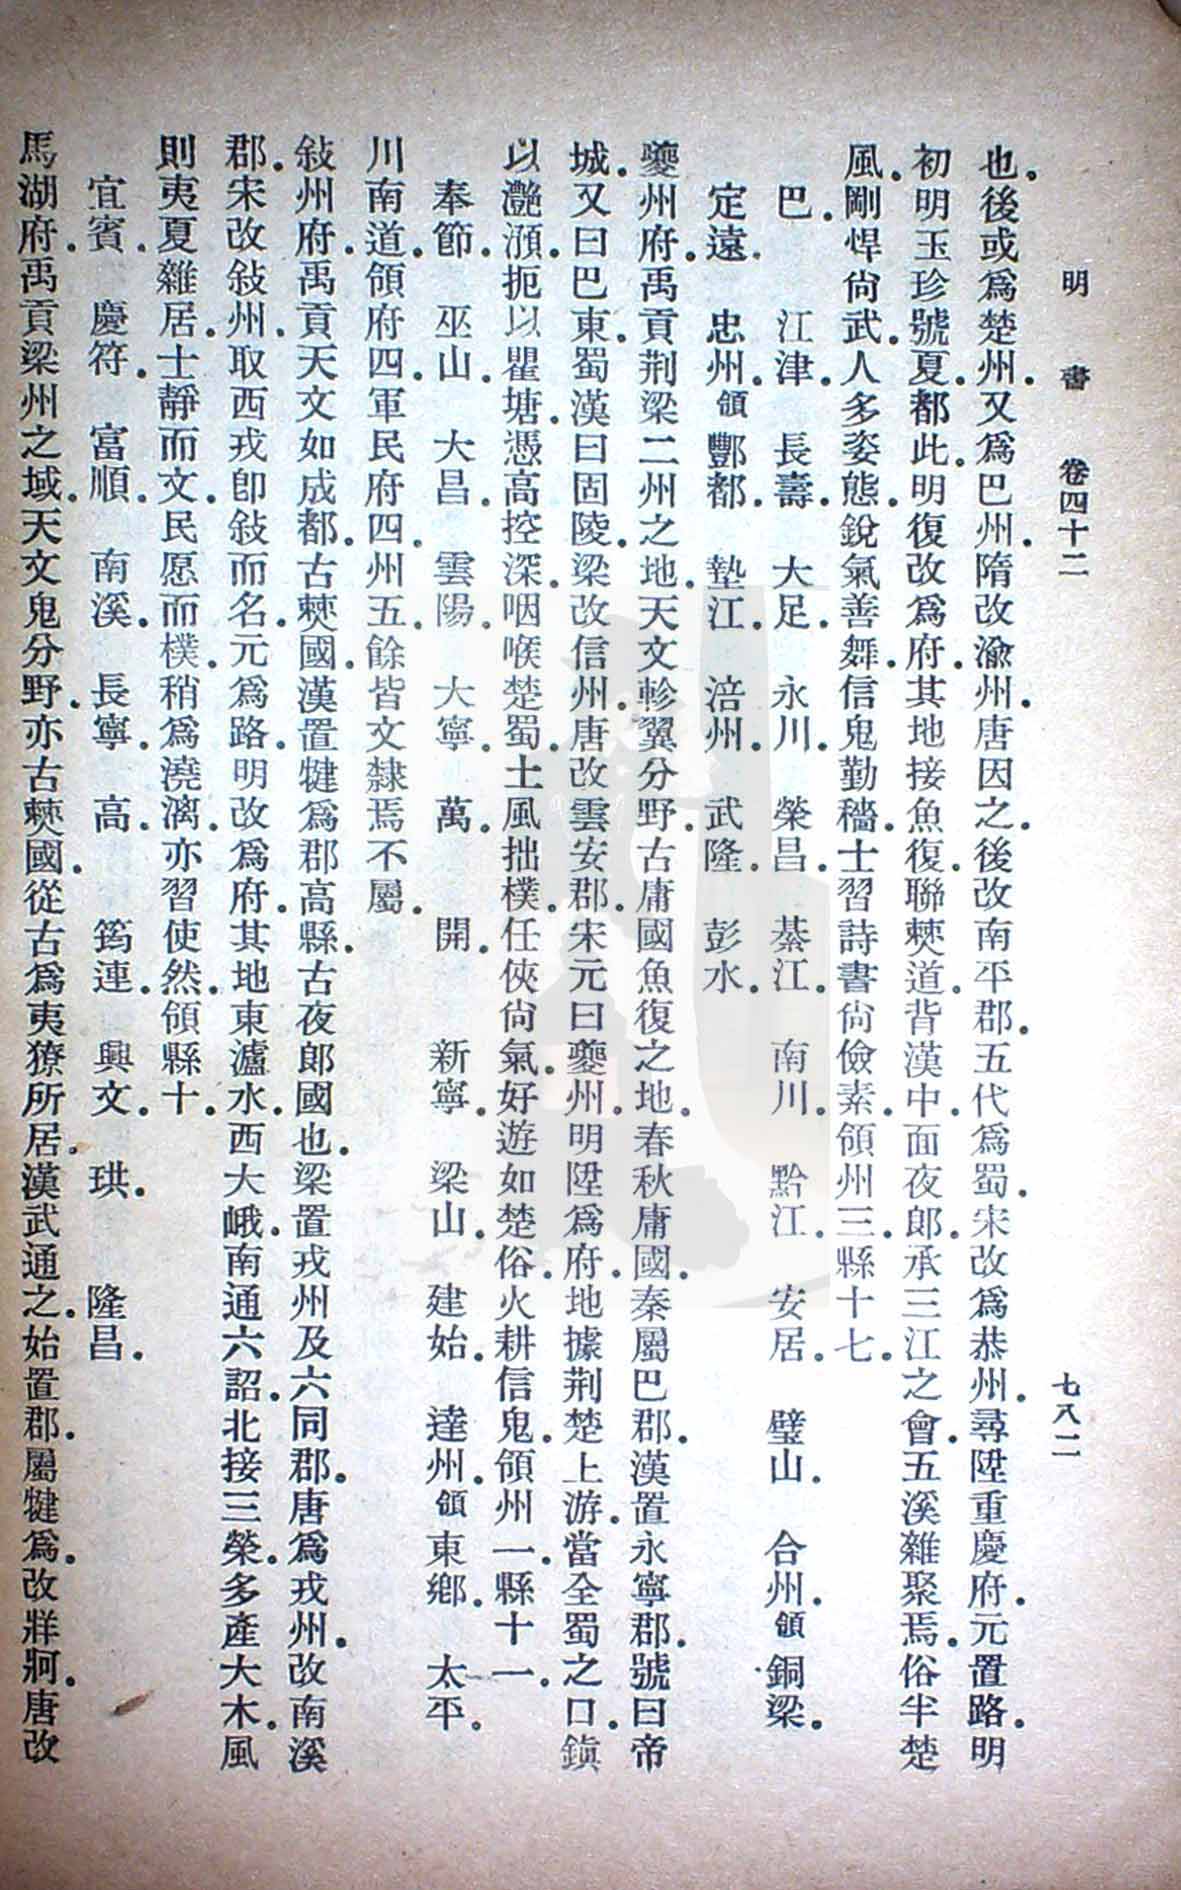 明書 卷四十二 七八二
也。後或爲楚州。又爲巴州。隋改渝州。唐因之。後改南平郡。五代爲蜀。宋改爲恭州。尋陞重慶府。元置路。明
初明玉珍號夏。都此。明復改爲府。其地接魚復。聯僰道。背漢中。面夜郎。承三江之會。五溪雜聚焉。俗半楚
風。剛悍尙武。人多姿態。銳氣善舞。信鬼勤穡。士習詩書尙儉素。領州三。縣十七。
巴。 江津。 長壽。 大足。 永川。 榮昌。 綦江。 南川。 黔江。 安居。 璧山。 合州。領銅梁。
定遠。 忠州。領酆都。 墊江。 涪州。 武隆。 彭水。
夔州府。禹貢荆梁二州之地。天文軫翼分野。古庸國魚復之地。春秋庸國。秦屬巴郡。漢置永寧郡。號曰帝
城。又曰巴東。蜀漢曰固陵。梁改信州。唐改雲安郡。宋元曰夔州。明陞爲府。地據荆楚上游。當全蜀之口。鎭
以灧澦。扼以瞿塘。憑高控深。咽喉楚蜀。士風拙樸。任俠尙氣。好遊如楚俗。火耕信鬼。領州一。縣十一。
奉節。 巫山。 大昌。 雲陽。 大寧。 萬。 開。 新寧。 梁山。 建始。 達州。領東鄉。 太平。
川南道。領府四。軍民府四。州五。餘皆文隸焉。不屬。
敍州府。禹貢天文如成都。古僰國。漢置犍爲郡。高縣。古夜郎國也。梁置戎州及六同郡。唐爲戎州。改南溪
郡。宋改敍州。取西戎卽敍而名。元爲路。明改爲府。其地東瀘水。西大峨。南通六詔。北接三榮。多產大木。風
則夷夏雜居。士靜而文。民愿而樸。稍爲澆漓。亦習使然。領縣十。
宜賓。 慶符。 富順。 南溪。 長寧。 高。 筠連。 興文。 珙。 隆昌。
馬湖府。禹貢梁州之域。天文鬼分野。亦古僰國。從古爲夷獠所居。漢武通之。始置郡。屬犍爲。改牂牁。唐改